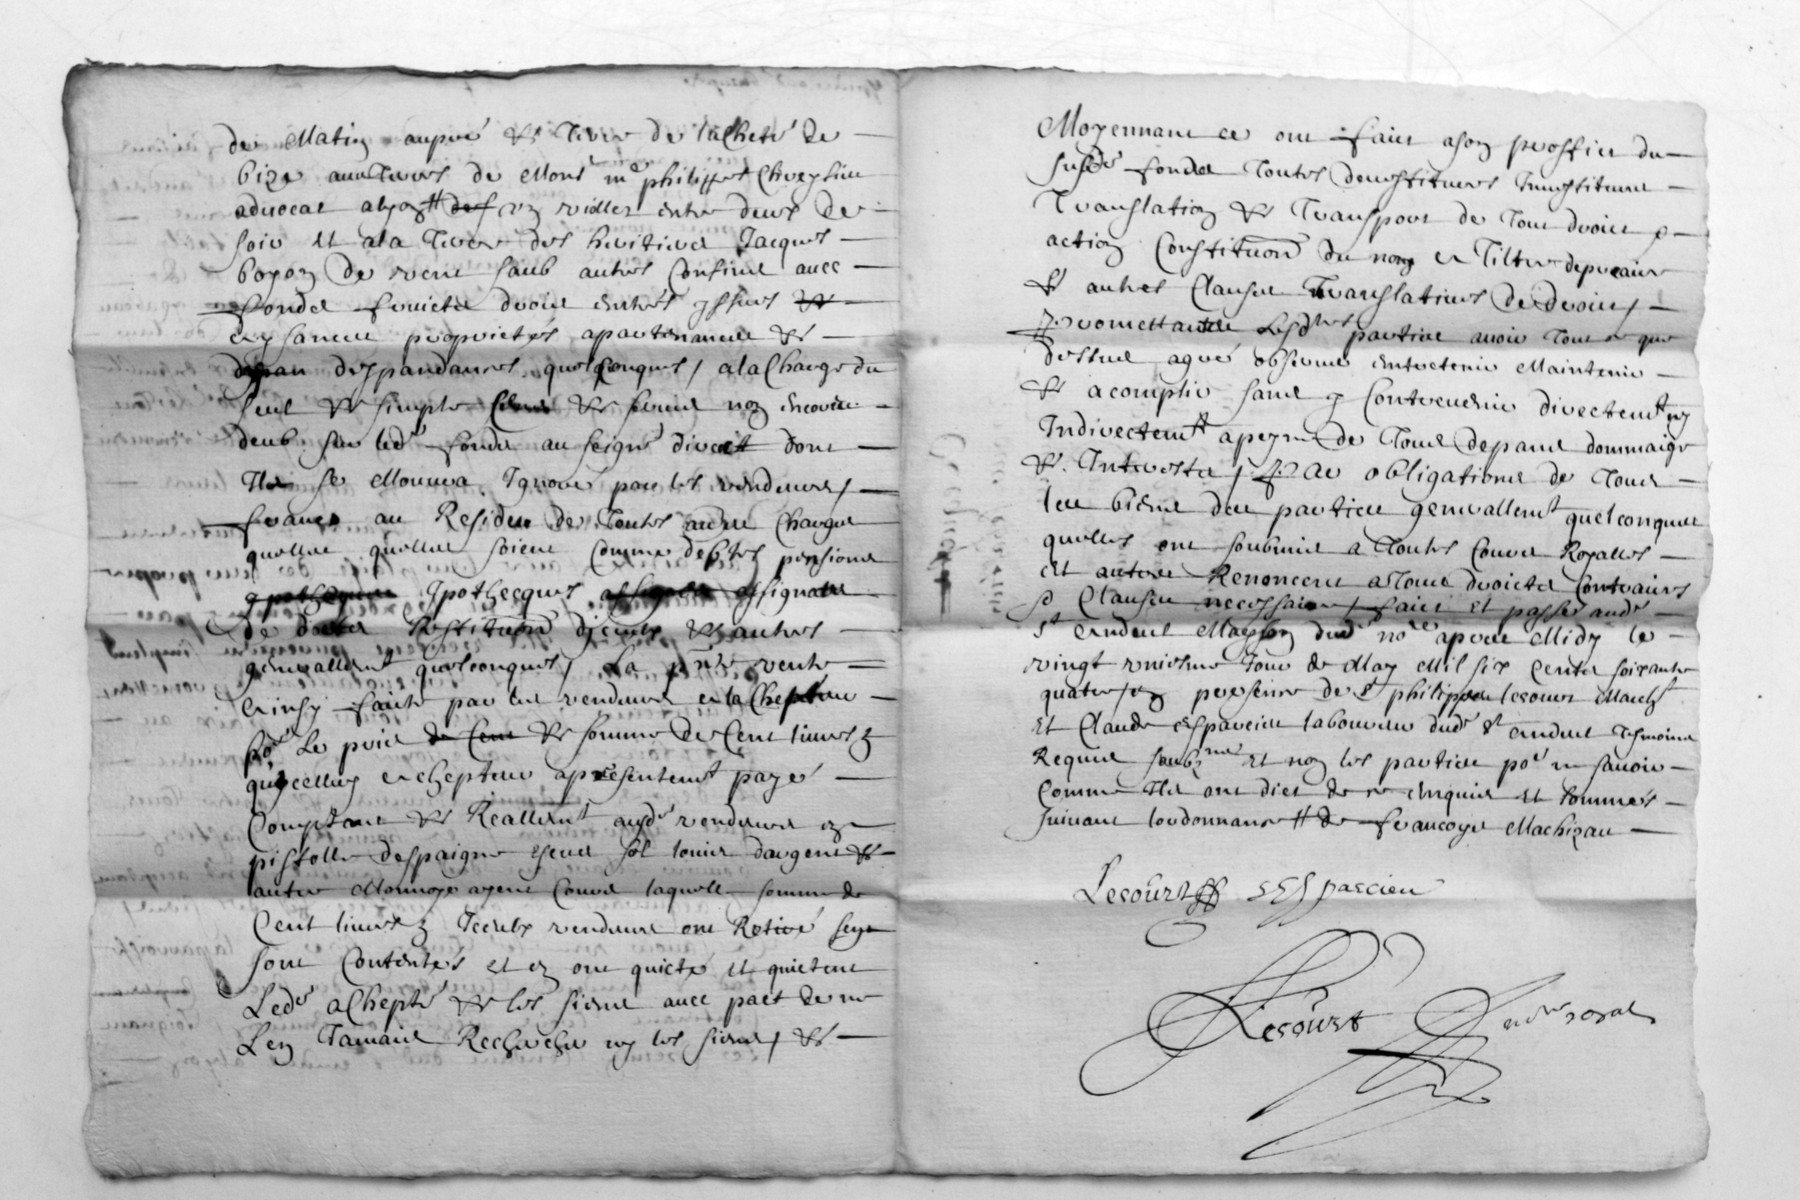 de Matin aupré & terre de lacheté de
bize aux terres de Mons.r m.e philippes
advocat alyon un viollet entre deux de
soir et a la terre des heritiers Jacques
boyon de vent saub autres confins avec
fondz fruictz droictz entrés yssues &
aysances proprietes apartenances &
despandances quelconques / a la Charge du
seul & simple Cens & servis non encoure
deub sur led.e fondz au seigr direct dont
Ils se Mouvra Ignoré par les vendeurs /
francz au Residu de toutes autres Charges
quelles quelles soient comme debtes pensions
Ipothecques assignatz
de dotz Restitution d & autres
generallem.t quelconques / La p.nte vente
ainsy faicte par les vendeurs a lachepteur
po.r Le pris & somme de Cent livres z
quycelluy achepteur apresentem.t payé
Comptant & Reallem.t ausd.e vendeurs en
pistolle despaigne escus sol louis dargent &
autre Monnoye ayent Cours laquelle somme de
Cent livres z Iceulx vendeurs ont Retiré sen
sont Contentés et en ont quicté et quictent
Led.e achepte & les siens avec pact de ne
Len Jamais Rechercher ny les siens / &
Moyennant ce ont faict a son proffict du
susd.e fondz toutes devestitures Investitures
Translation & transport de tout droict
action Constitution du nom et Tiltre de precaire
& autres Clauses translatives de droict /
promettantz Lesd.tes parties avoir tout ce que
dessus agré observer entretenir Maintenir
& acomplir sans y Contrevenir directem.t ny
Indirectem.t a peyne de tous despans dommaige
& Interestz / Par obligations de tous
les biens des parties generallem.t quelconques
quelles ont soubmis a toutes Cours Royalles
et autres Renoncent a tous droictz Contraires
& Clauses necessaires / faict et passé aud.e
S.t andeul Maison dud.e no.re apres Midy le
vingt uniesme Jour de May Mil six Centz soixante
quatre / en presence de s.r philippes lecourt March.t
et Claude espaicieu laboureur dud.e S.t andeul tesmoins
Requis soubz.nés et non les parties po.r ne savoir
Comme Ils ont dict de ce enquis et sommés
suivant lordonnance de francoys Machizau
Lecourt espaicieu
Lecourt no.re royal